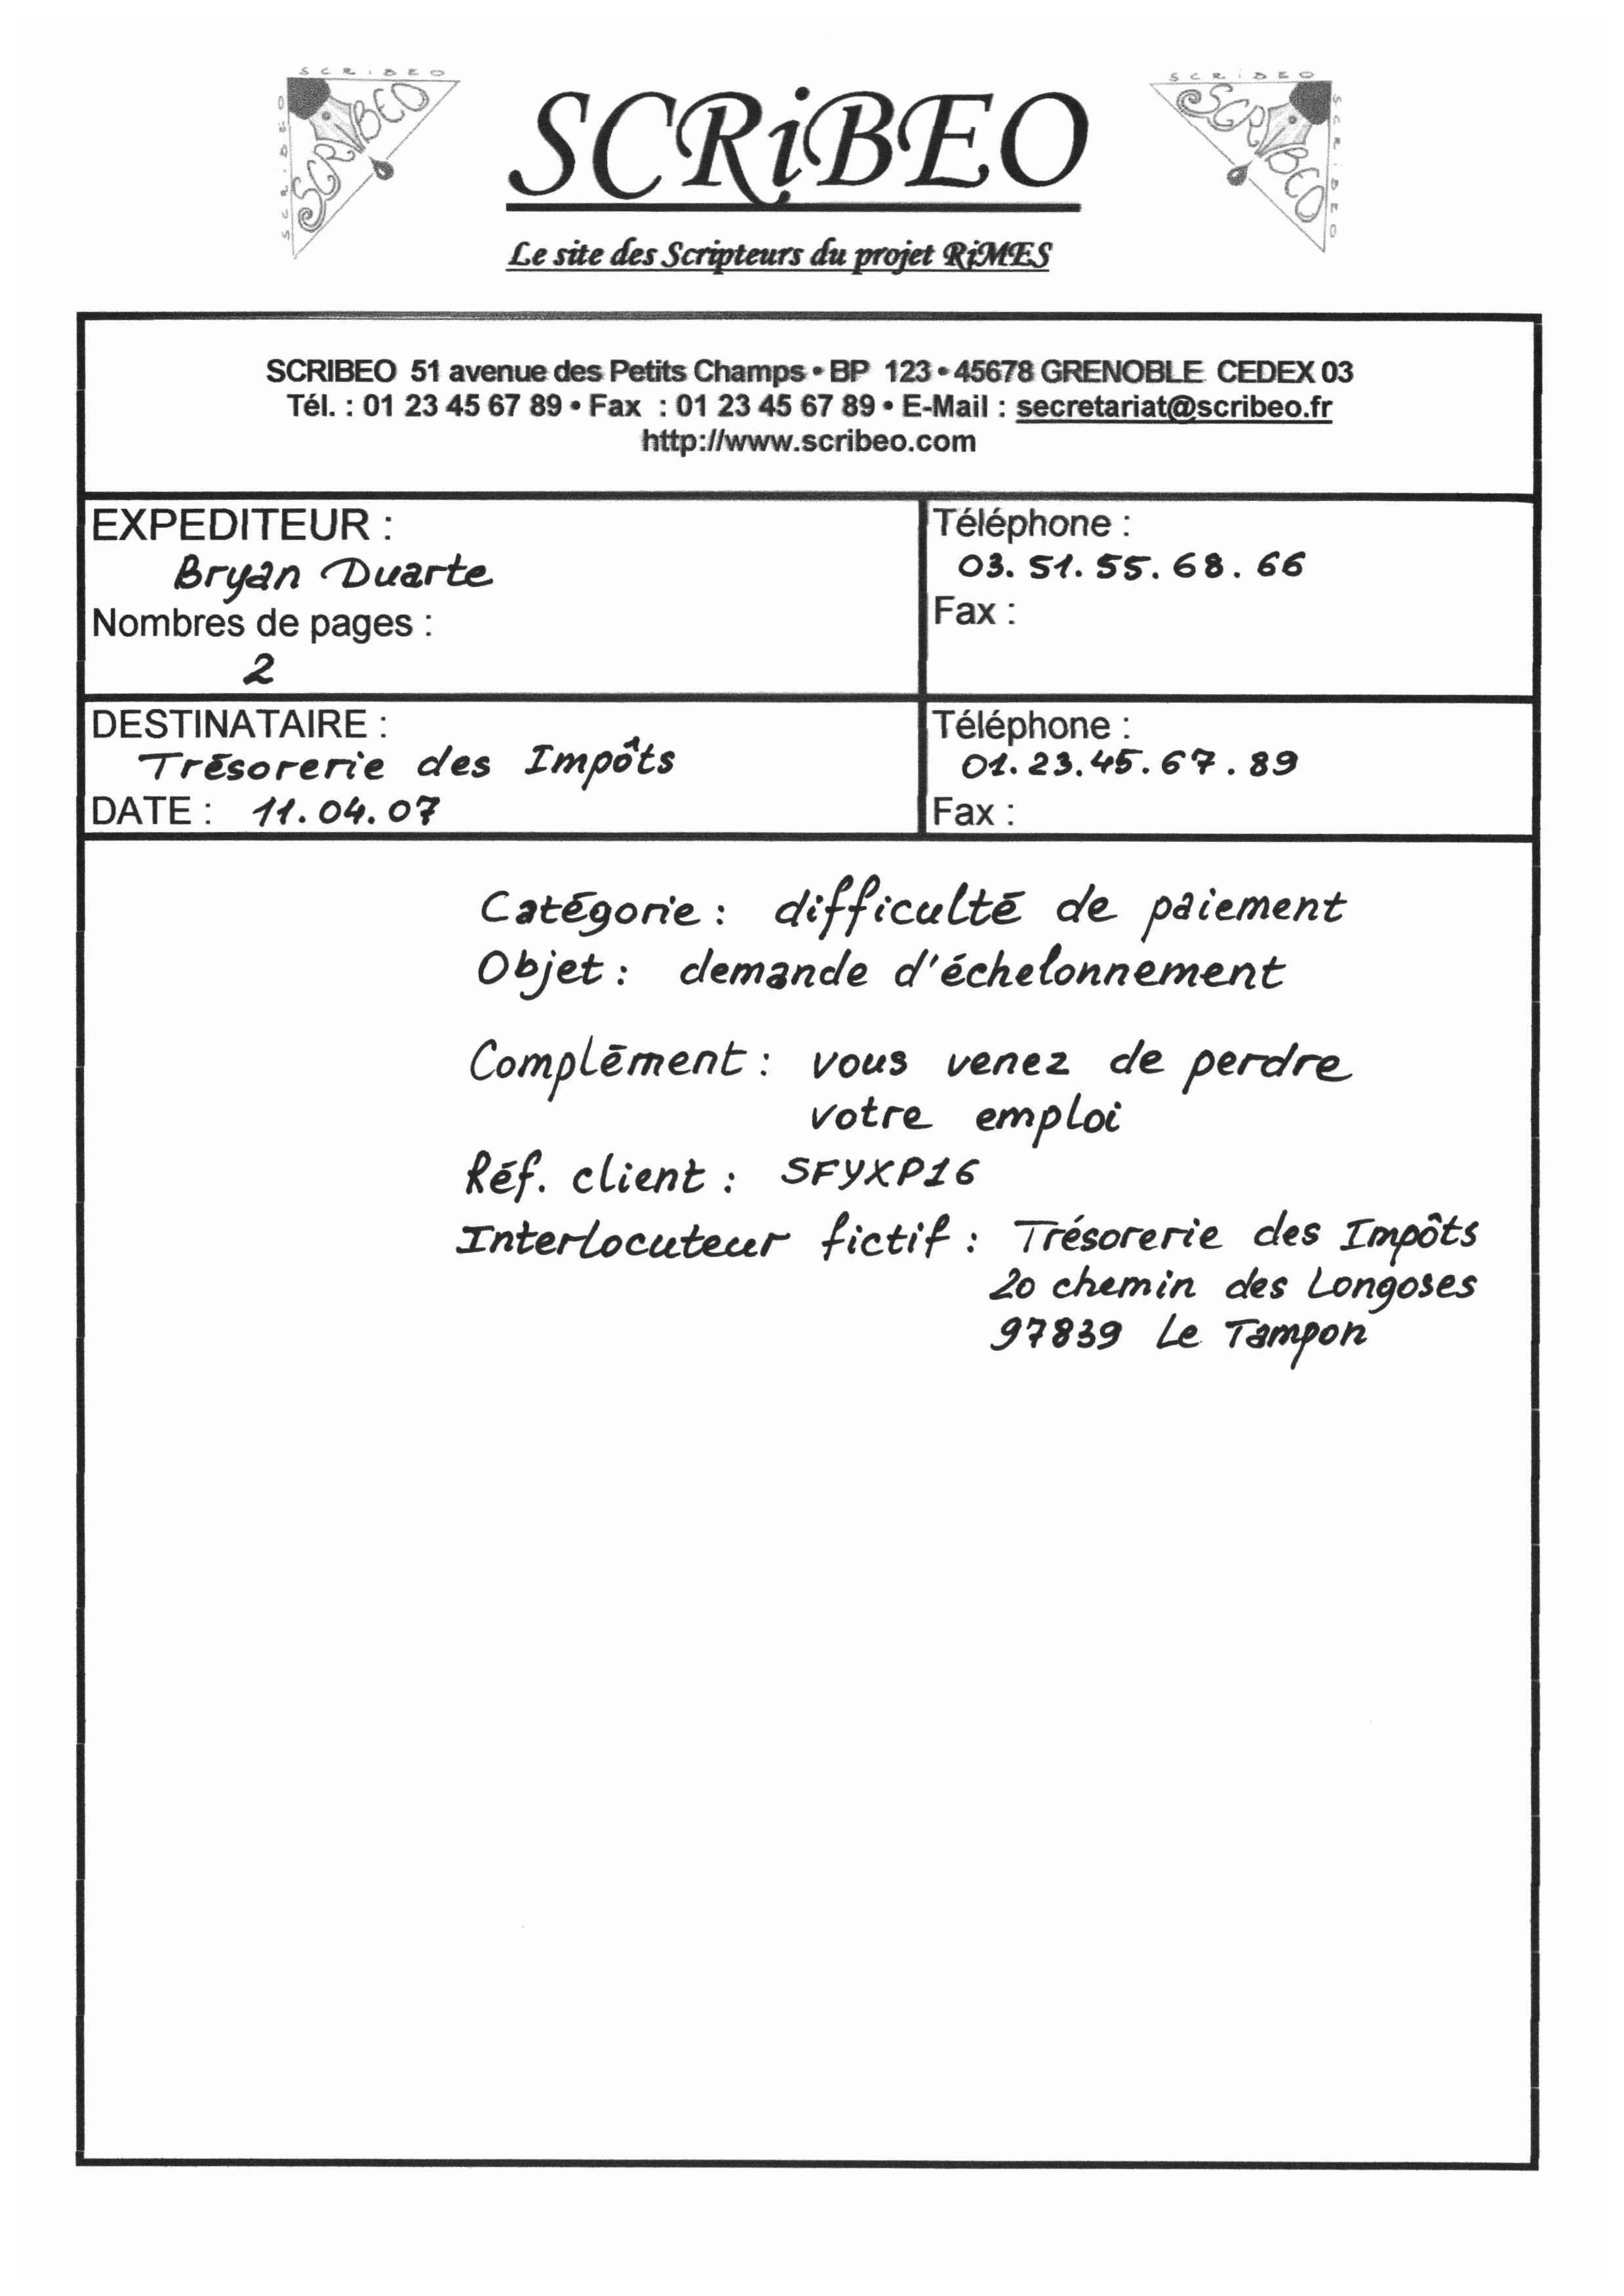 SCRIBEO
SCRIBEO
SCRiBEO
SCRIBEO
SCRIBEO
Le site des Scripteurs du projet RiMES
SCRIBEO 51 avenue des Petits Champs • BP 123 • 45678 GRENOBLE CEDEX 03
Tél. : 01 23 45 67 89 • Fax : 01 23 45 67 89 • E-Mail : secretariat@scribeo.fr
http://www.scribeo.com
EXPEDITEUR :
Bryan Duarte
Nombres de pages :
2
Téléphone :
03. 51. 55. 68. 66
Fax :
DESTINATAIRE :
Trésorerie des Impôts
DATE : 11. 04. 07
Téléphone :
01. 23. 45. 67. 89
Fax :
Catégorie : difficulté de paiement
Objet : demande d'échelonnement
Complément : vous venez de perdre
votre emploi
Réf. client : SFYXP16
Interlocuteur fictif : Trésorerie des Impôts
20 chemin des Longoses
97839 Le Tampon